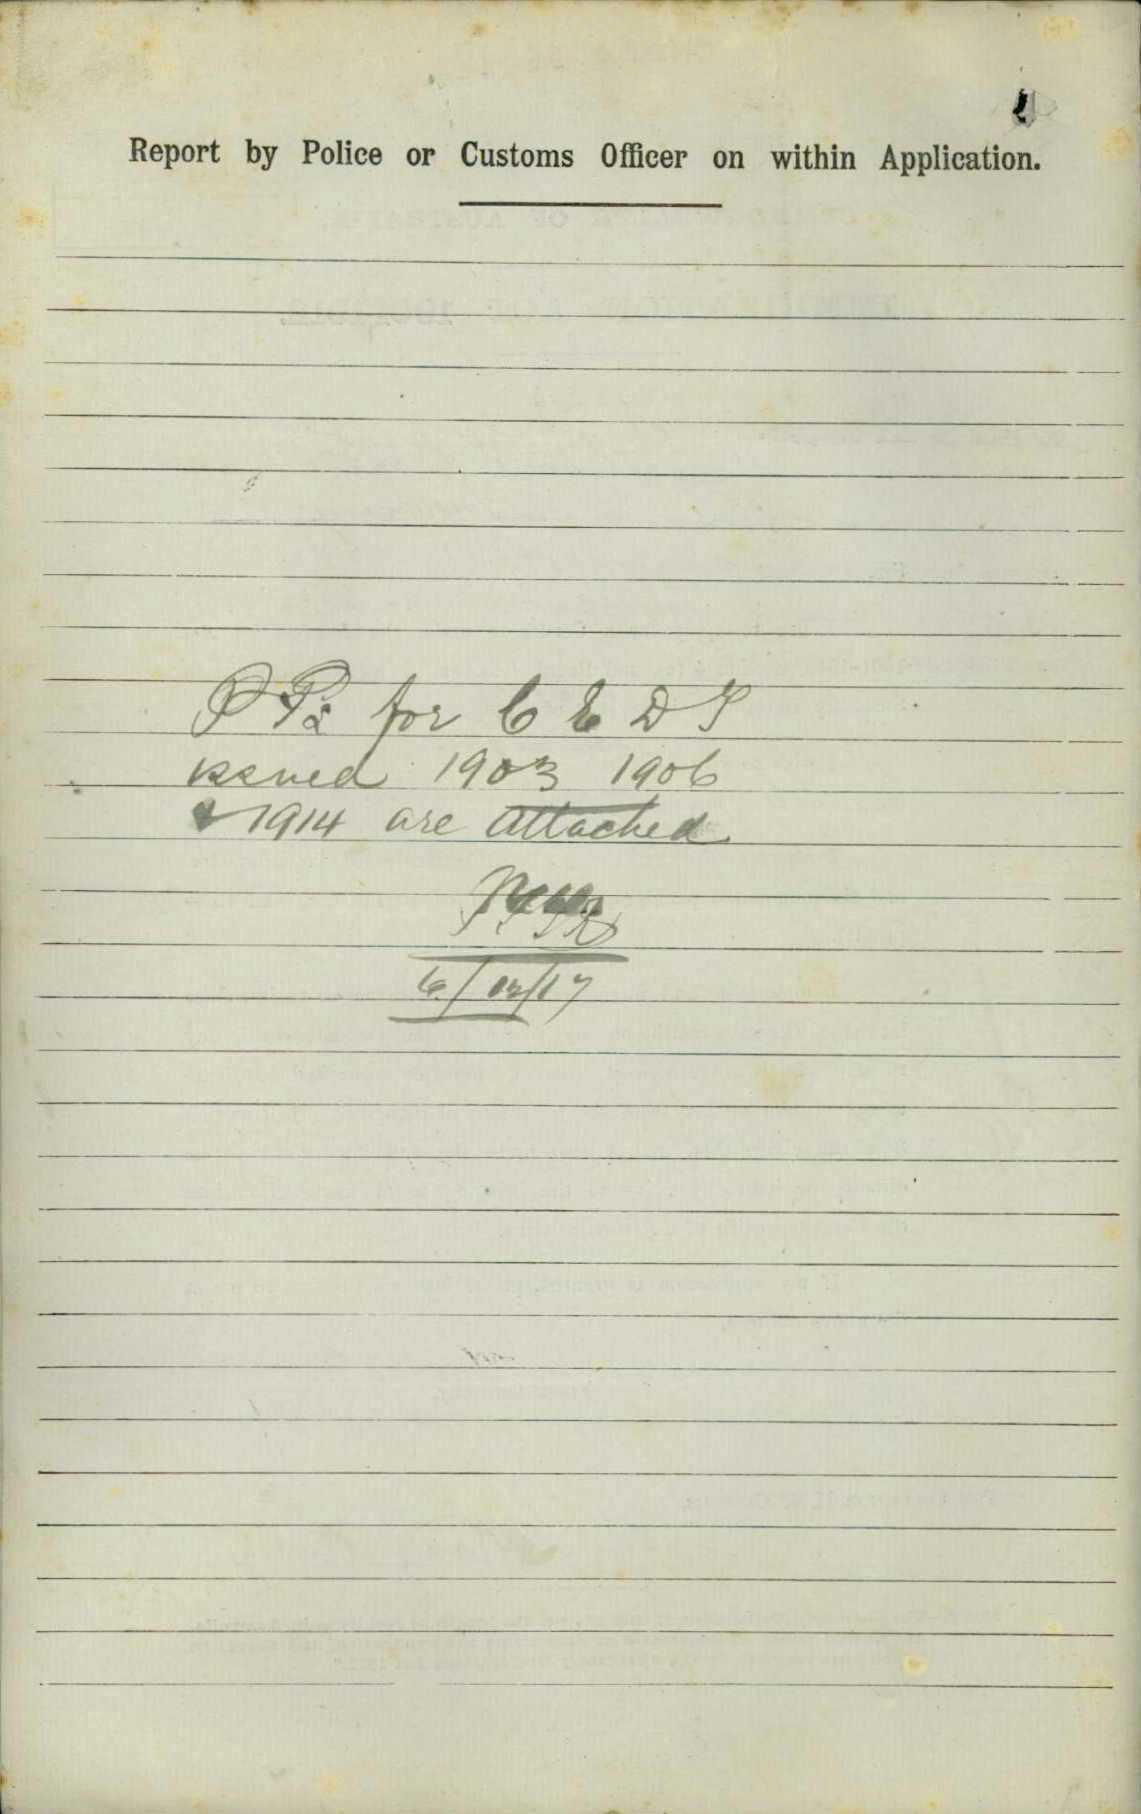 Report by Police or Customs Officer on within Application.
P Ps for C E D T
issued 1903 1906
& 1914 are attached
6/12/17